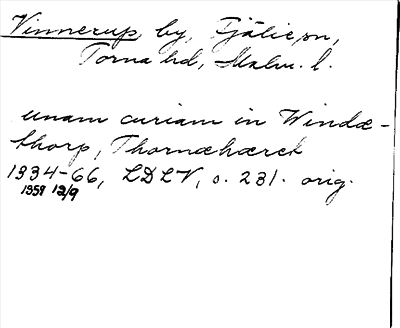 Vinnerup by, Fjälie sn,
Torna hd, Malm. l.
unam curiam in Windæ-
thorp, Thornæhæret
1334-66, LDLV, s. 231. orig.
1359 12/9